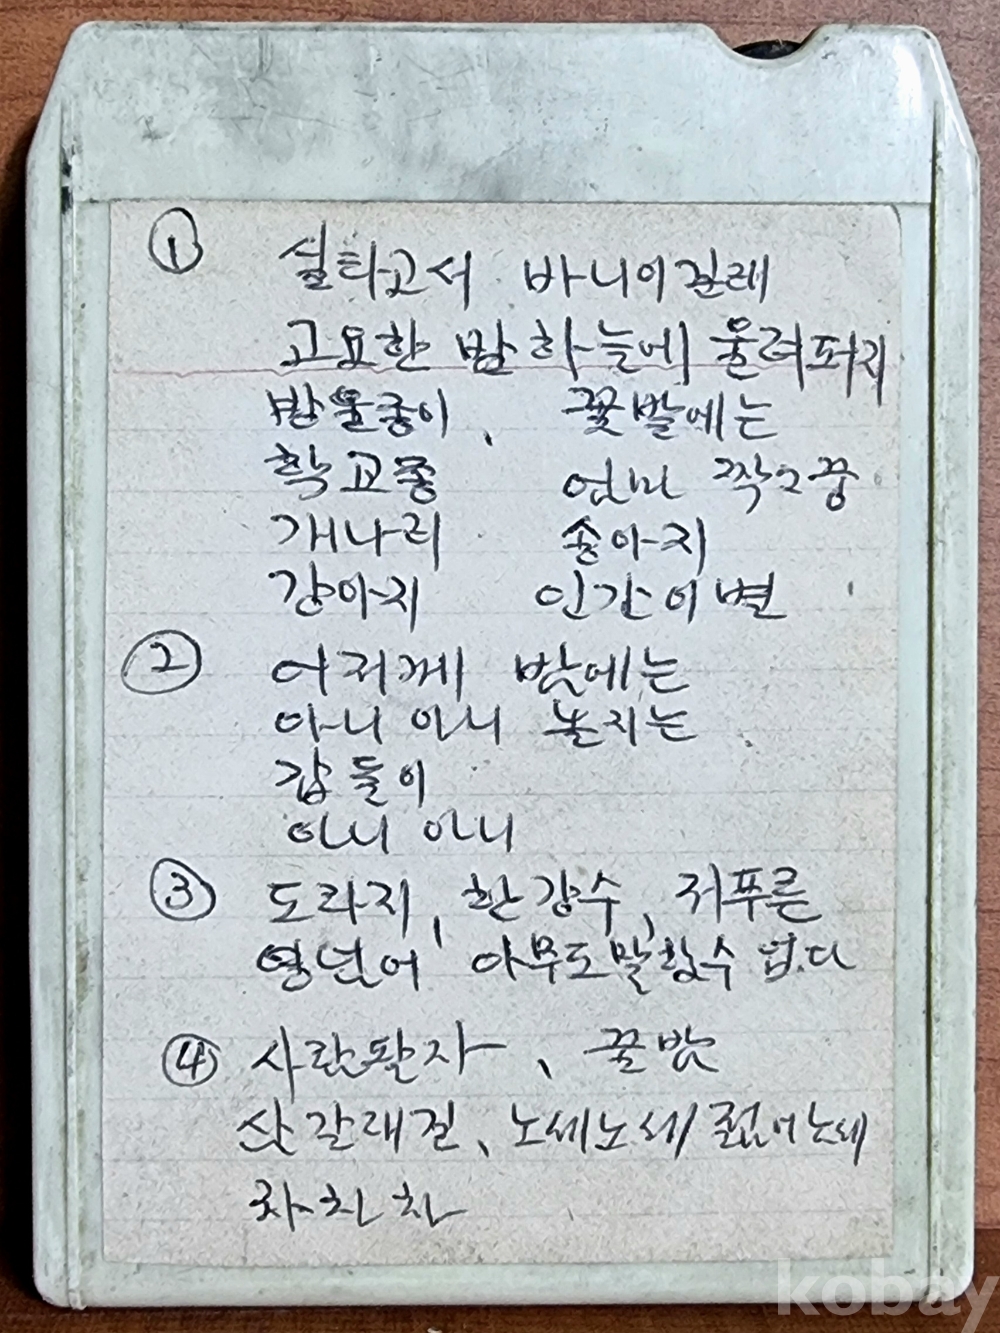 ①
실타고서 바니이길래
고요한 밤 하늘에 울려퍼지
방울종이, 꽃밭에는
학교종 엄마 짝그꿍
개나리 송아지
강아지 인간이별
②
어저께 밤에는
아니 아니 놀지는
갑돌이
아니 아니
③ 도라지, 한강수, 저푸른
열년어 아무도 말할수 없다
④ 사랑팔자, 꿀밤
산갈래길, 노세노세/젊어노세
차차차
kobay